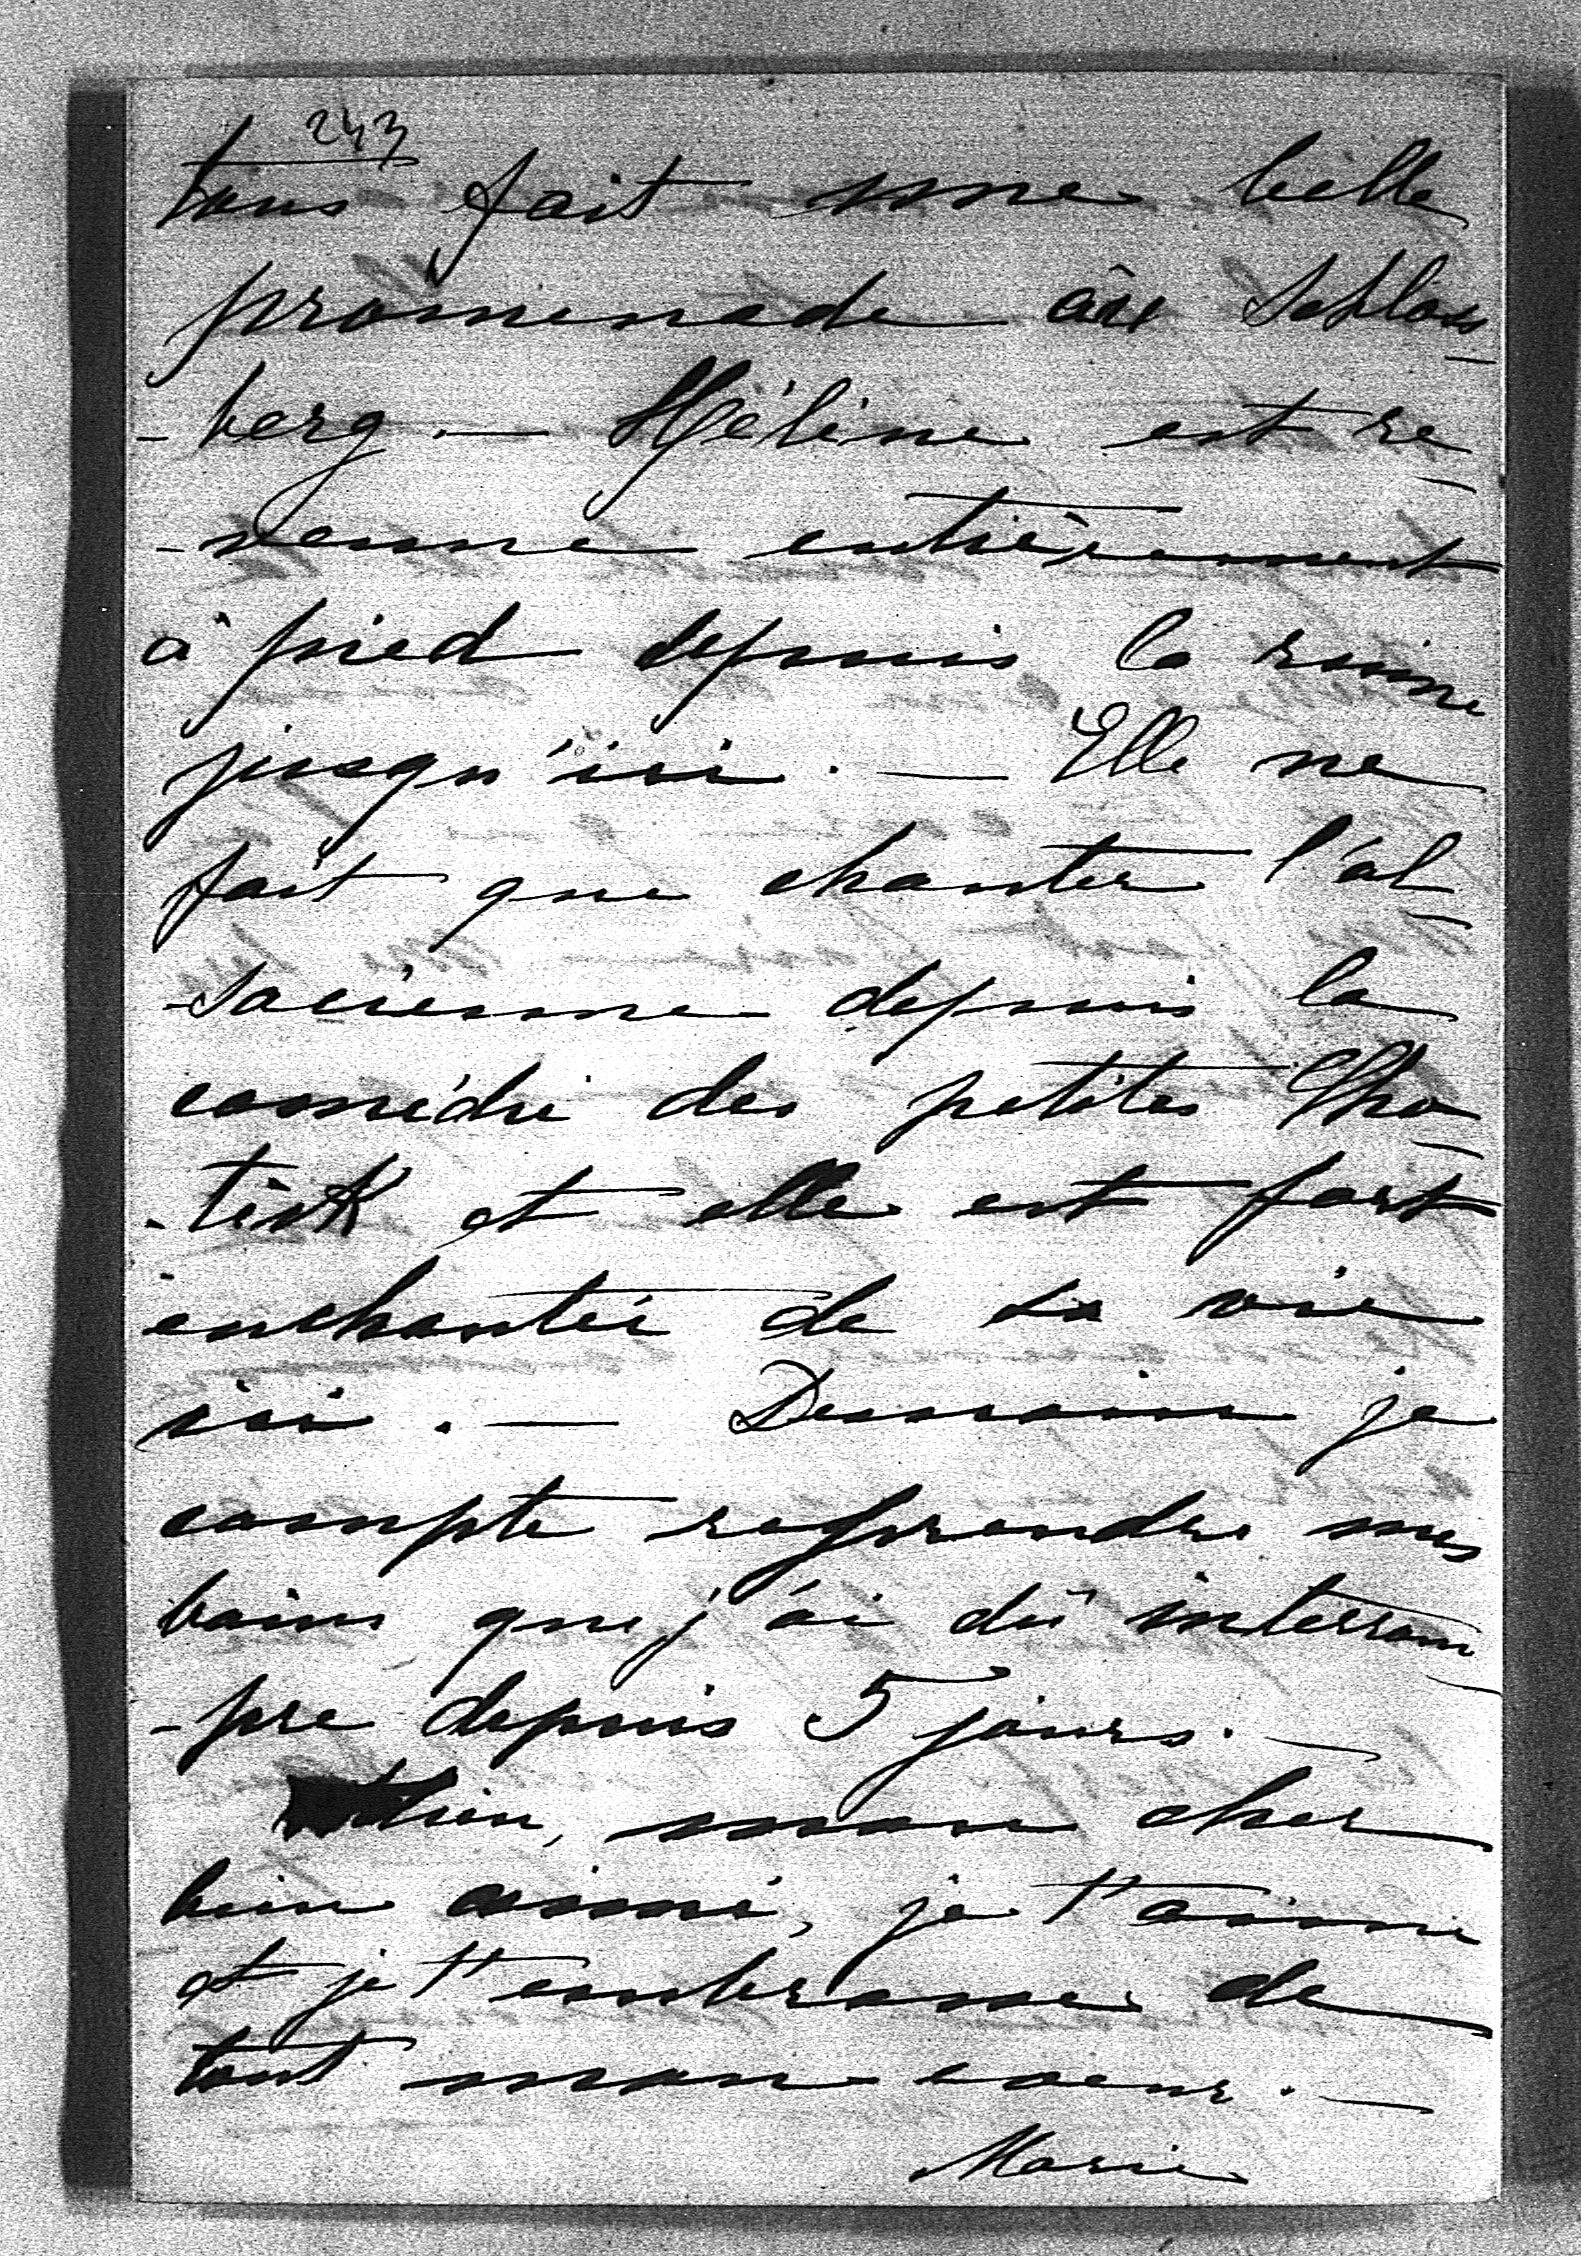 243
tous fait une belle
promenade au Schloss
-berg. — Hélène est re
-venue entièrement
à pied depuis la ruine
jusqu'ici. — Elle ne
fait que chanter l'al
-sacienne depuis la
comédie des petites
et elle est fort
enchantée de sa vie
ici. — Demain je
compte reprendre mes
bains que j'ai dû interrom
-pre depuis 5 jours. —
mon cher
bien aimé, je t'aime
et je t'embrasse de
tout mon coeur. —
Marie